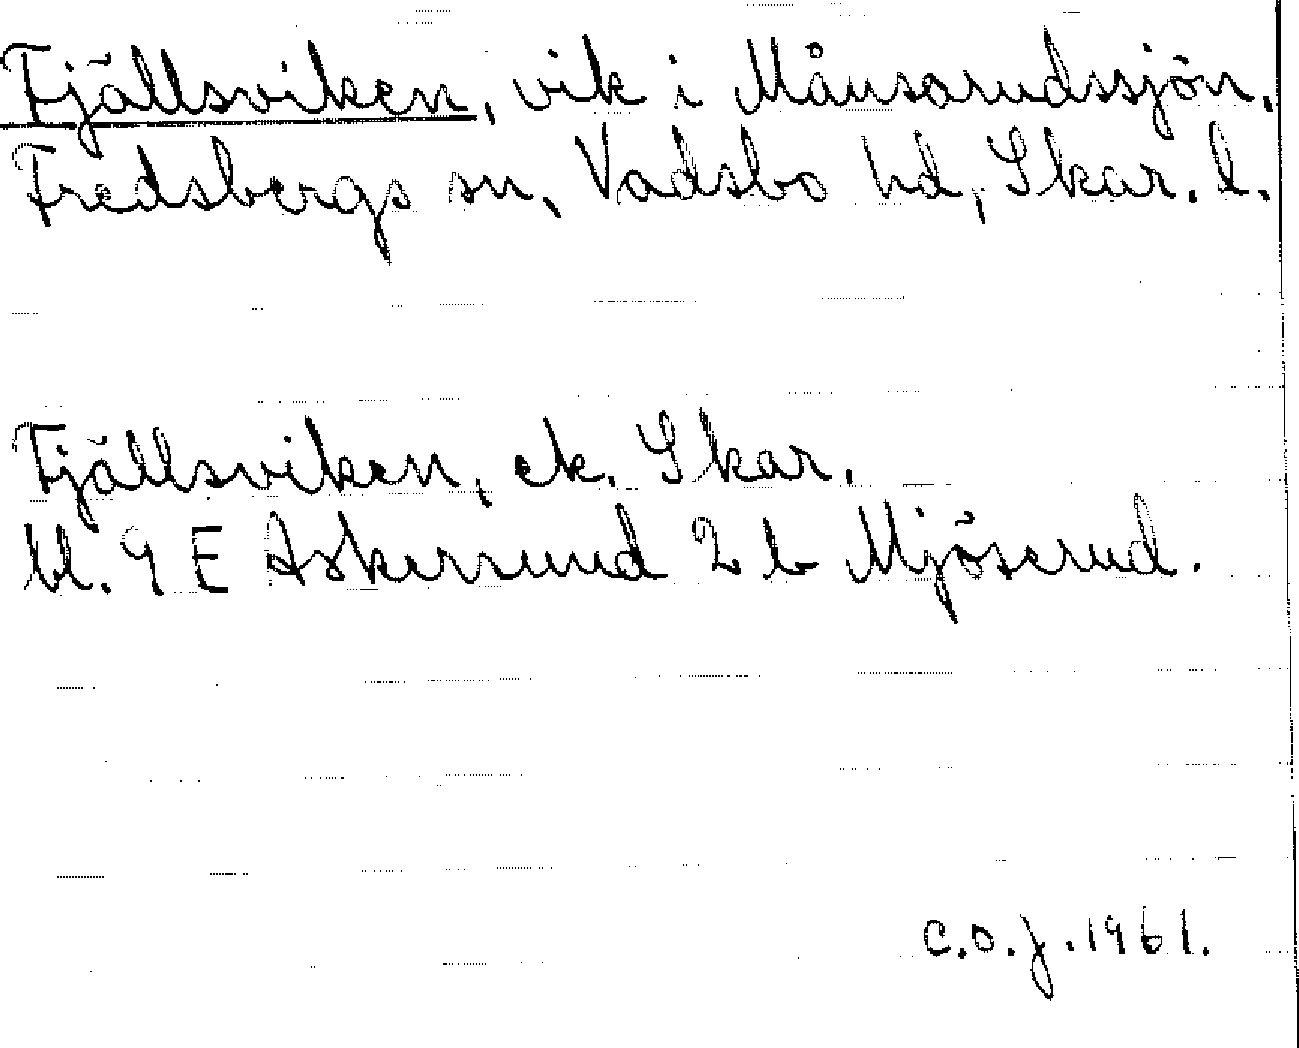 Fjällsviken, vik i Månsarudssjön,
Fredsbergs sn, Vadsbo hd, Skar. l.
Fjällsviken, ek. Skar.
bl. 9 E Askersund 2 b Mjöserud.
C.O.J. 1961.